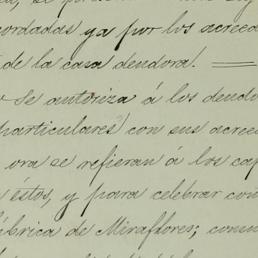 cordadas ya por los acreed
de la casa deudora! ===
se autoriza á los deudo
particulares) con sus acree
ora se refieran á los cap
éstos, y para celebrar con
ábrica de Miraflores; com